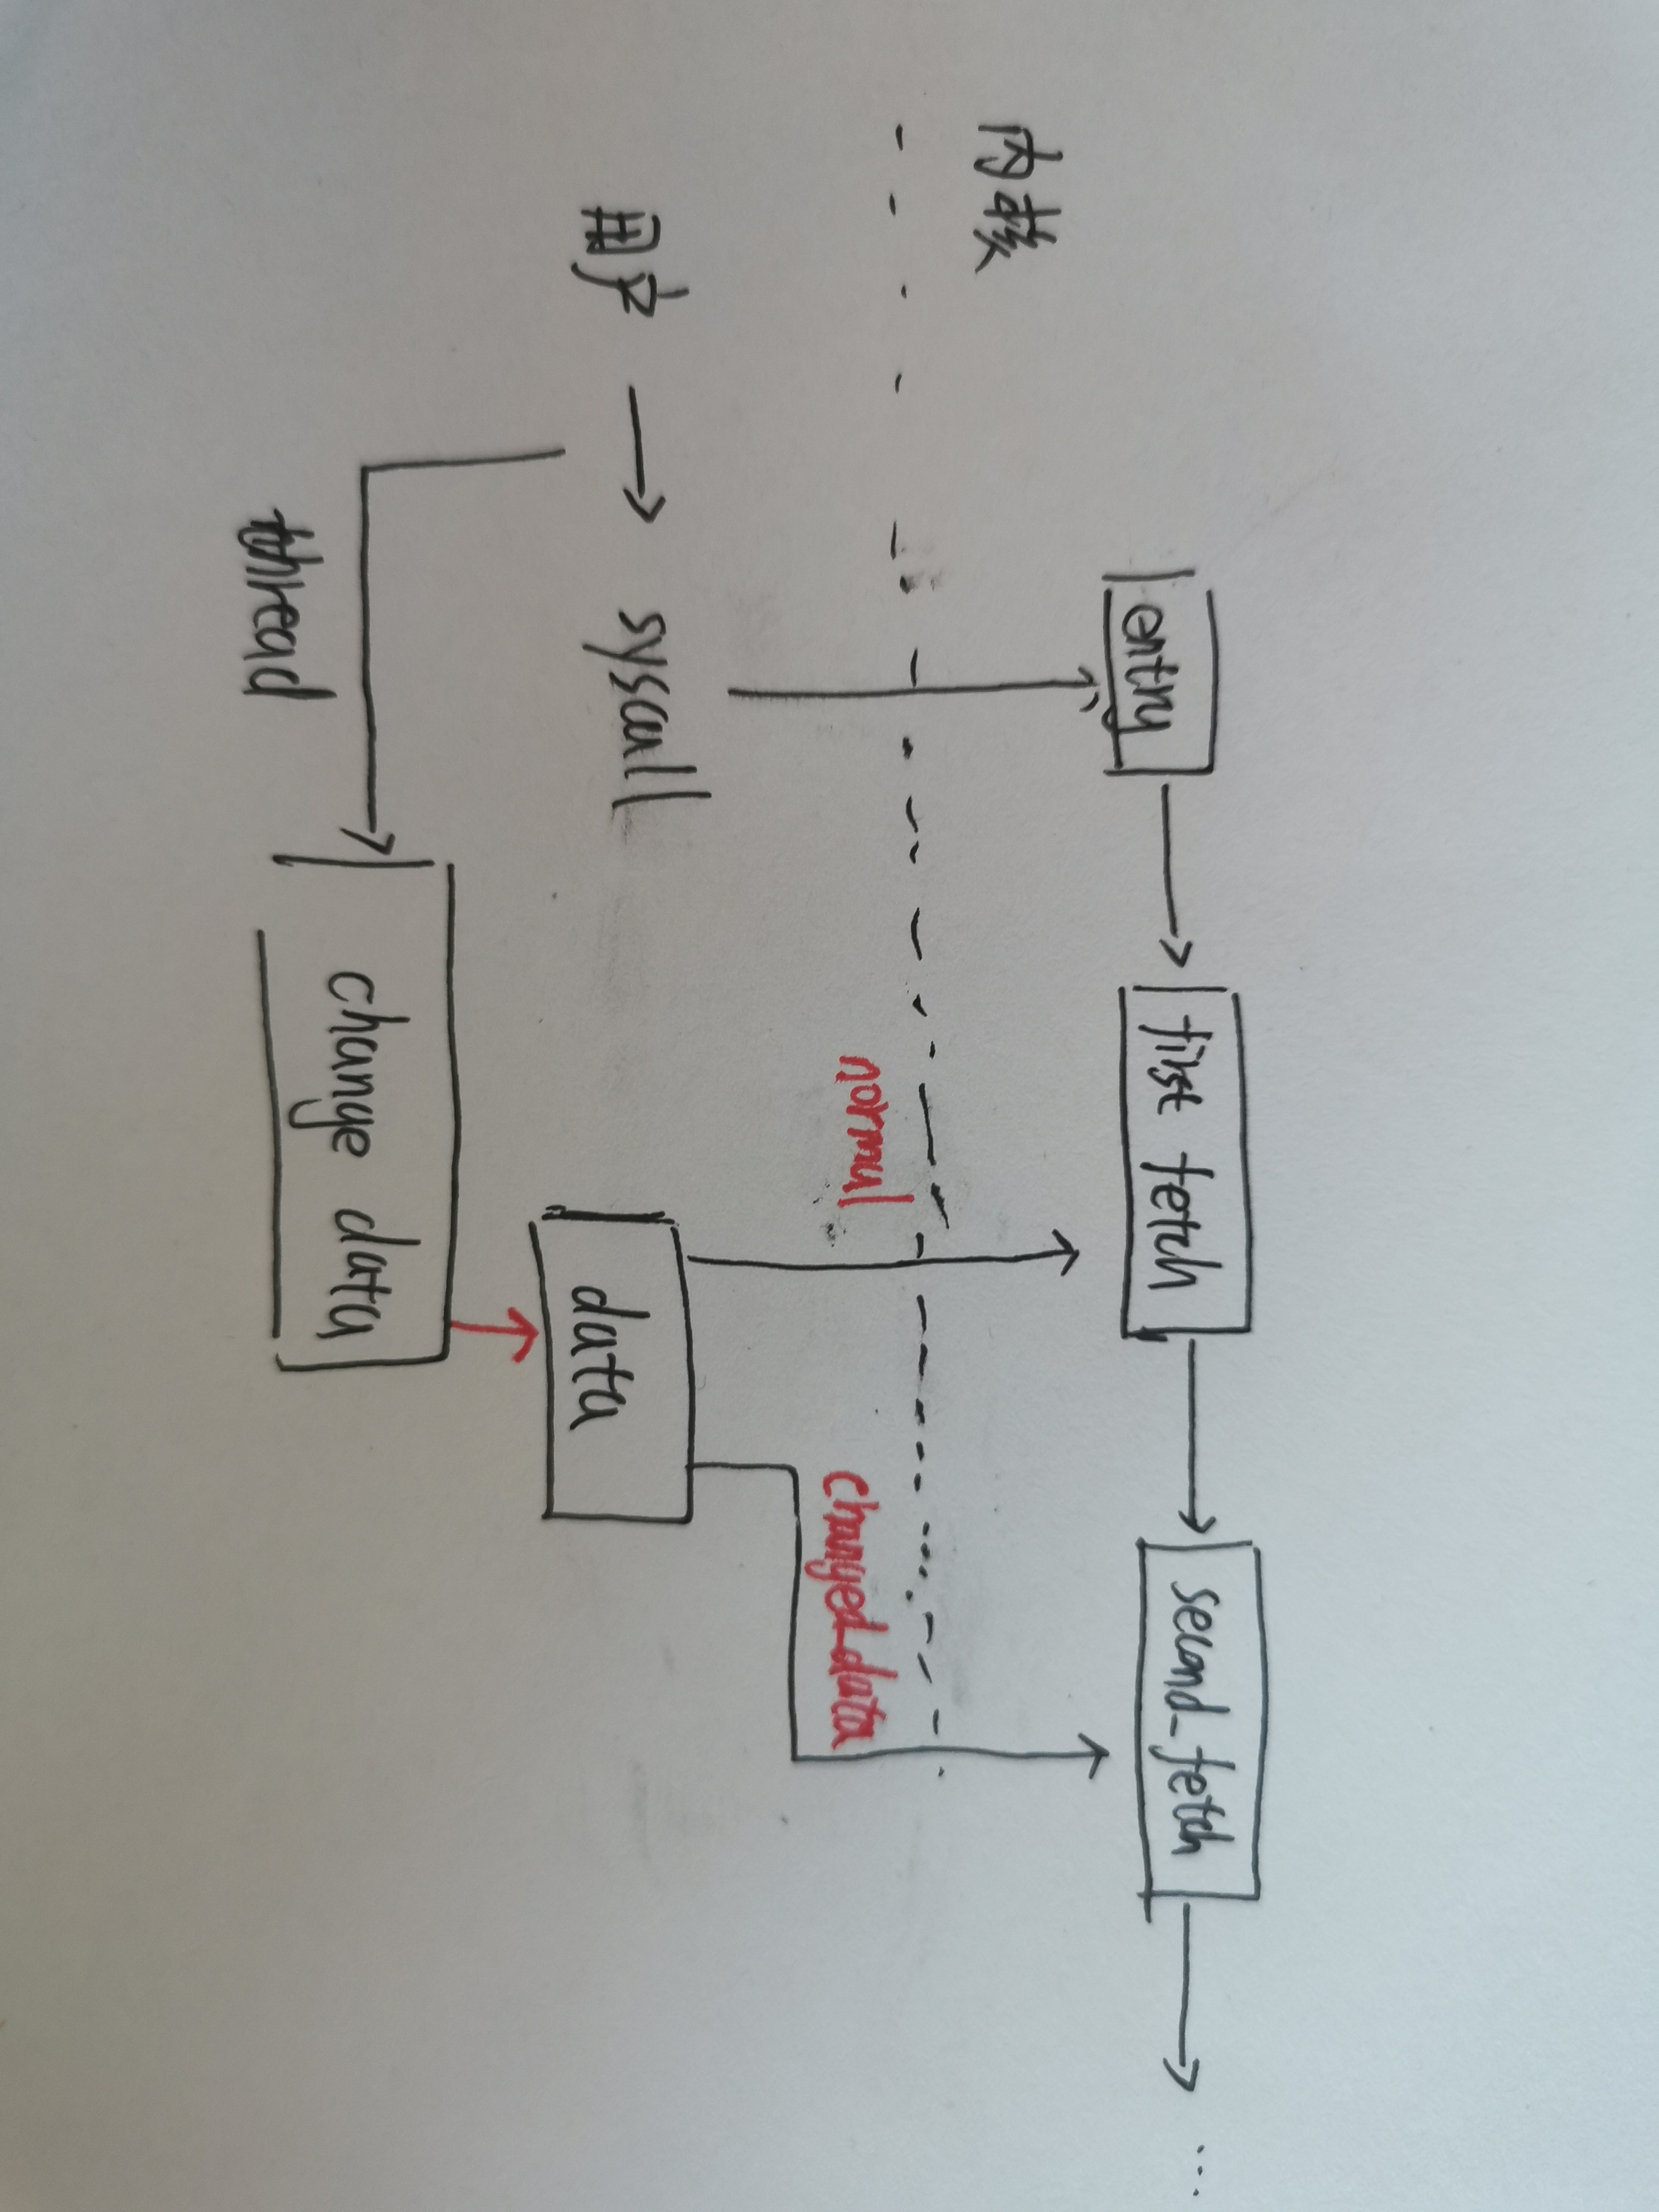 entry
first fetch
second_fetch
...
内核
normal
changed_data
用户
syscall
data
change data
thread